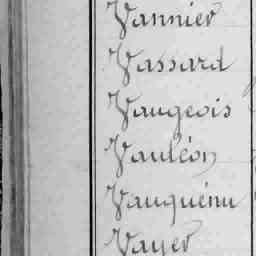 Vannier
Vassard
Vaugeois
Vauléon
Vauquénu
Vayer